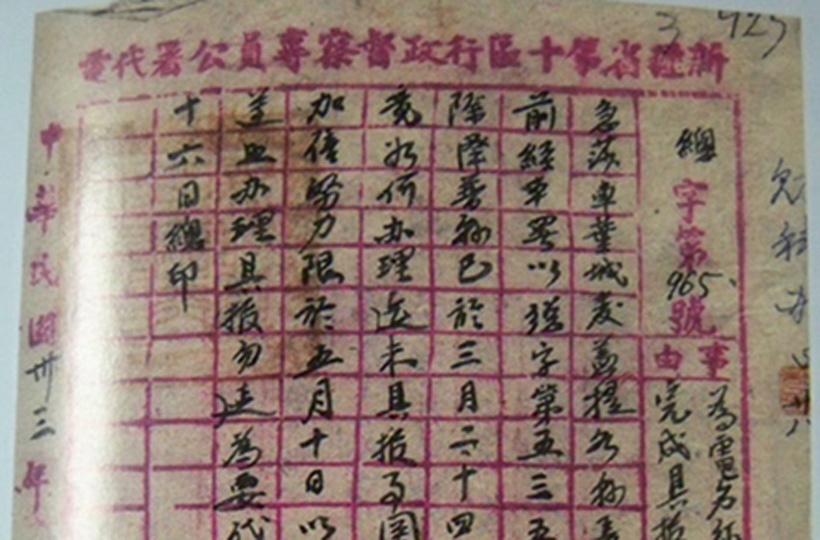 新疆省第十區行政督察專員公署代電
3 427
總字第965號
事由
為電
完成具报
急莎車葉城麦蓋提各縣長
前經本署以總字第五三五
除澤普縣已於三月二十四
竟如何办理迄未具报事関
加倍努力限於五月十日以
办理具报勿延為要代
十六日總印
中華民國卅三年